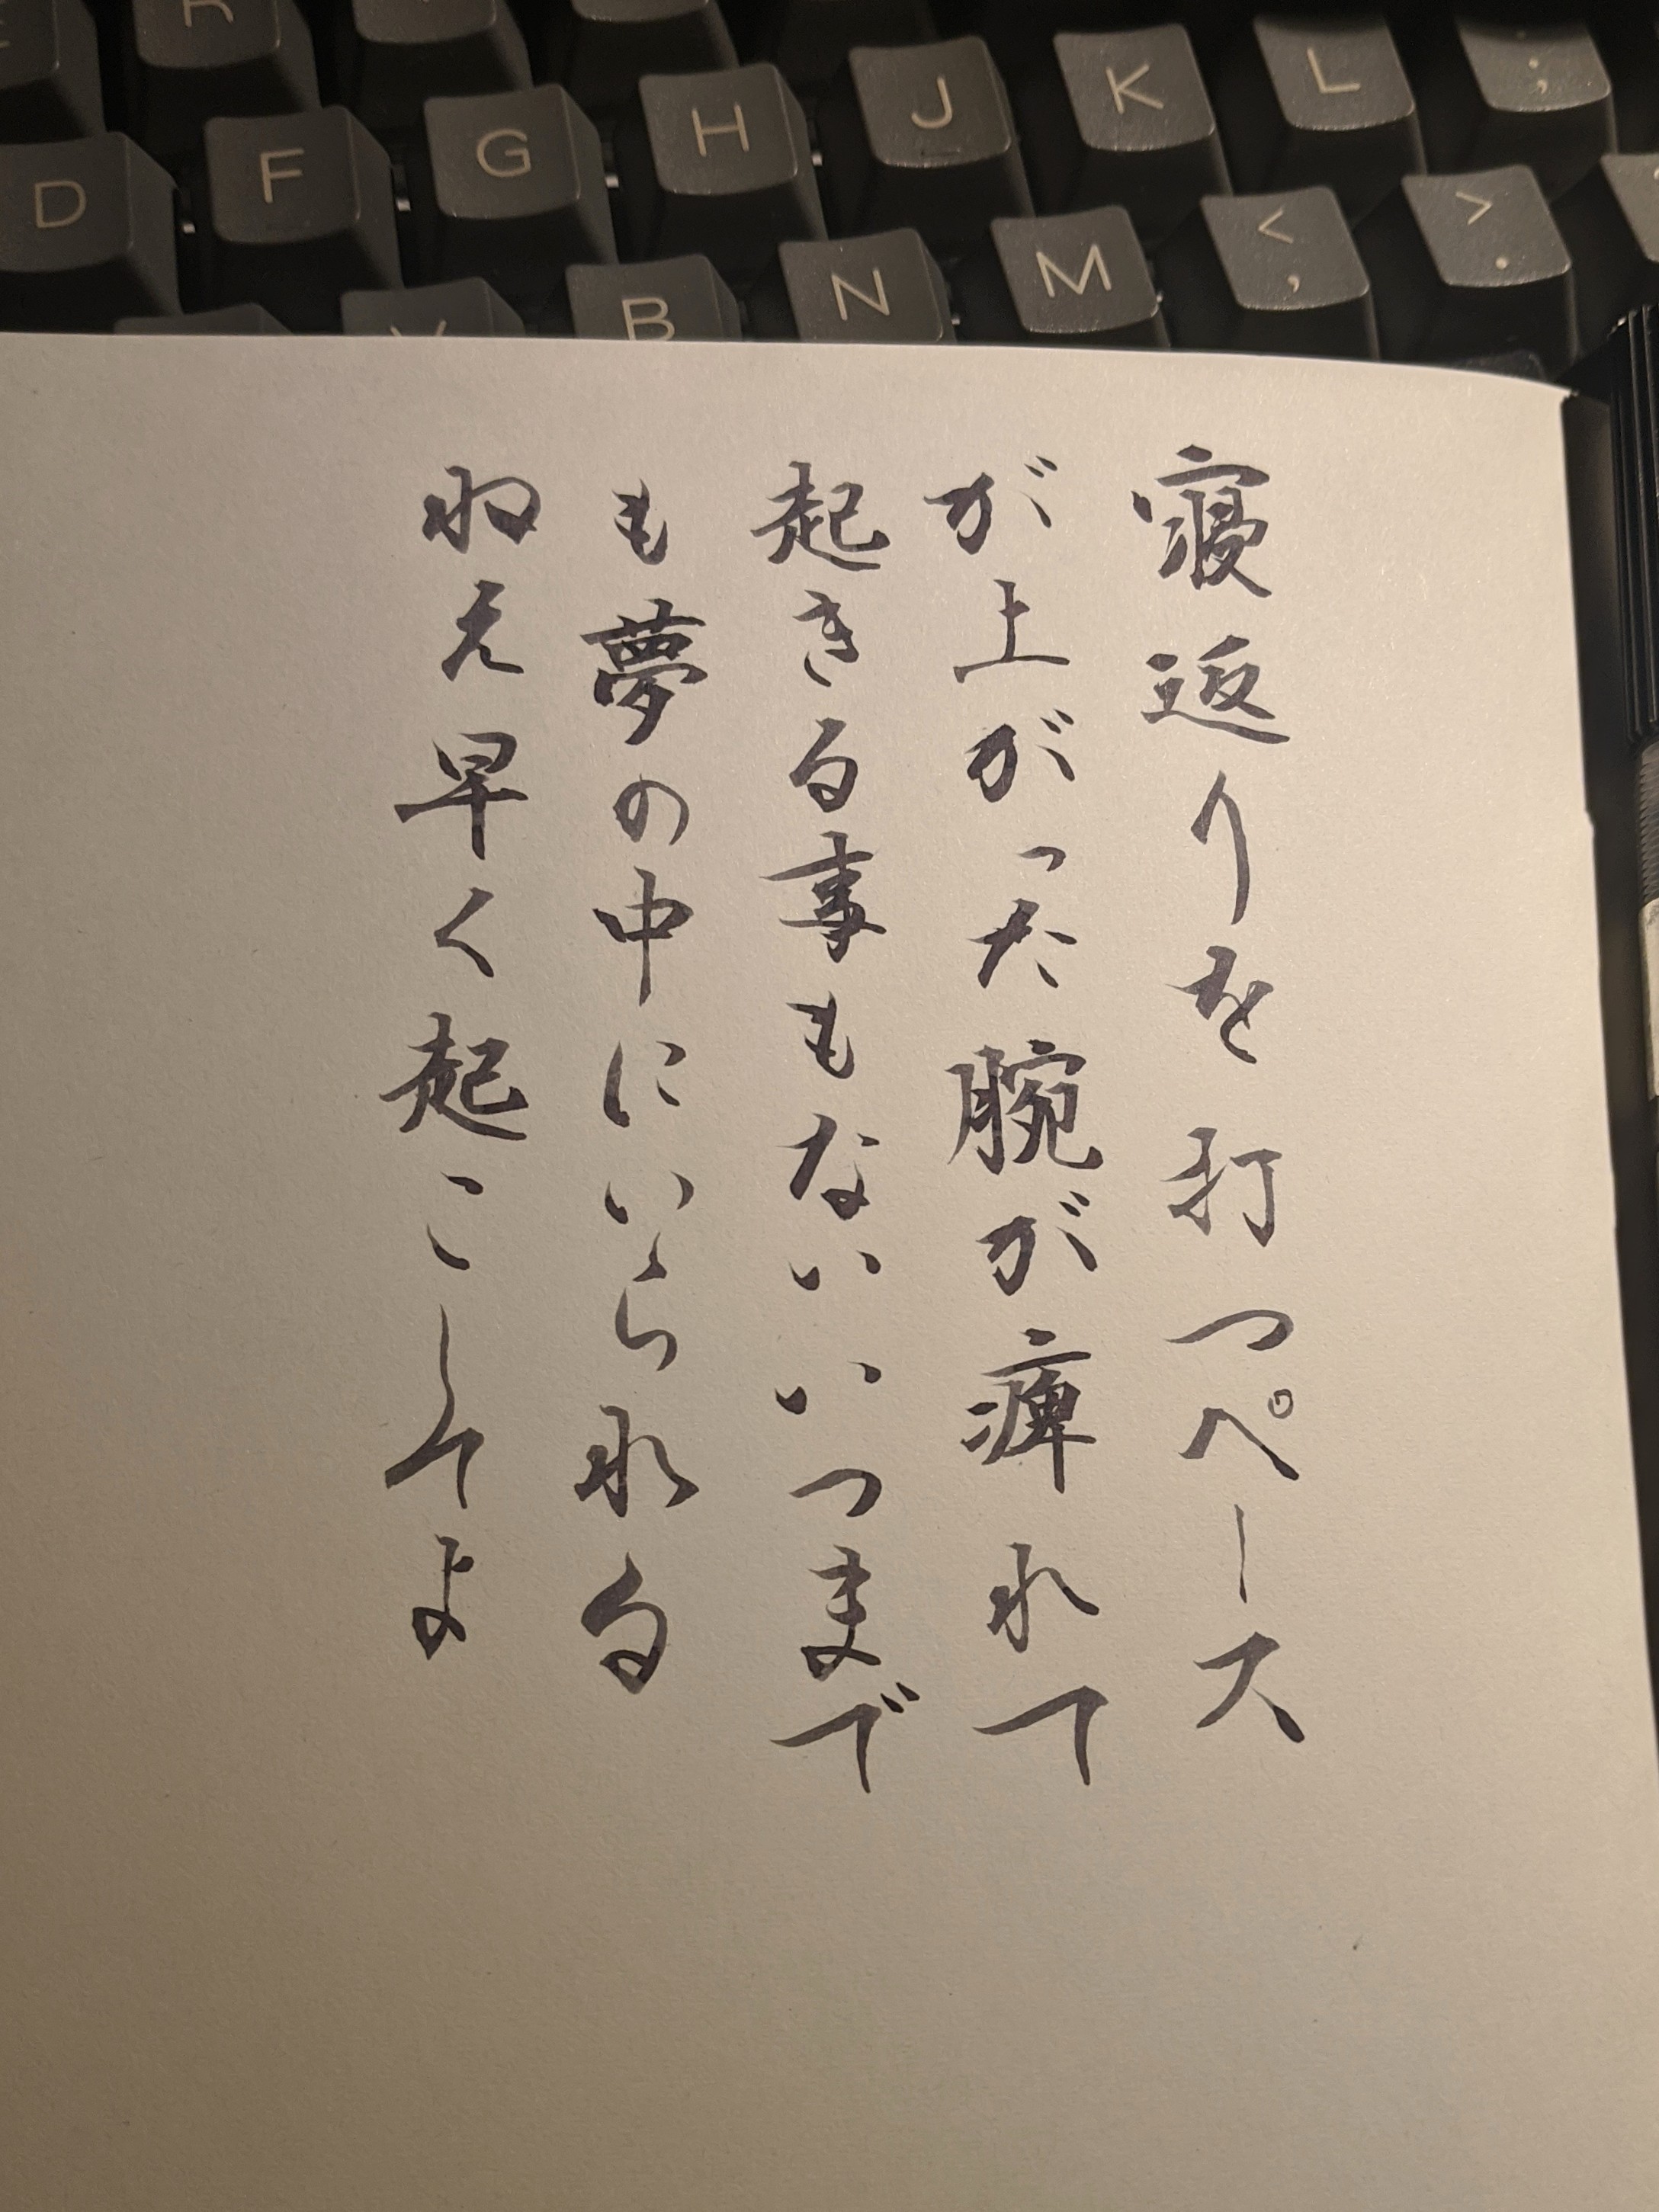 R
D F G H J K L ;
V B N M < , > .
寝返りを打つペース
が上がった腕が痺れて
起きる事もないいつまで
も夢の中にいられる
ねえ早く起こしてよ